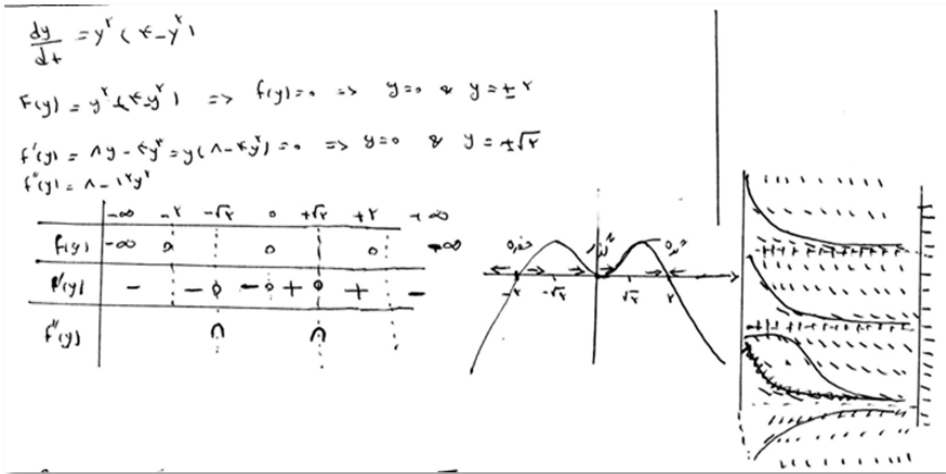 dy/dt = y² (۴-y²)
F(y) = y² (۴-y²) => f(y)=0 => y=0 & y=±۲
f'(y) = ۸y - ۴y³ = y(۸-۴y²) = 0 => y=0 & y=±√۲
f''(y) = ۸-۱۲y²
-∞ -۲ -√۲ 0 +√۲ +۲ +∞
f(y) -∞ 0 0 0 -∞
f'(y) - - 0 - 0 + 0 + -
f''(y) ∩ ∩
-۲ -√۲ √۲ ۲